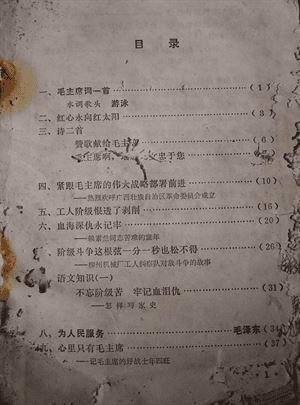 目 录
一、毛主席词一首 (1)
水调歌头 游泳
二、红心永向红太阳 (3)
三、诗二首
赞歌献给毛主席 (6)
毛主席啊, 忠于您 (8)
四、紧跟毛主席的伟大战略部署前进 (10)
——热烈欢呼广西壮族自治区革命委员会成立
五、工人阶级恨透了剥削 (16)
六、血海深仇永记牢 (20)
——苦难的童年
七、阶级斗争这根弦一分一秒也松不得 (26)
——柳州机械厂工人纠察队对敌斗争的故事
语文知识(一)
不忘阶级苦 牢记血泪仇 (31)
——怎样写家史
八、为人民服务 毛泽东 (34)
九、心里只有毛主席 (37)
——记毛主席的好战士年四旺
1